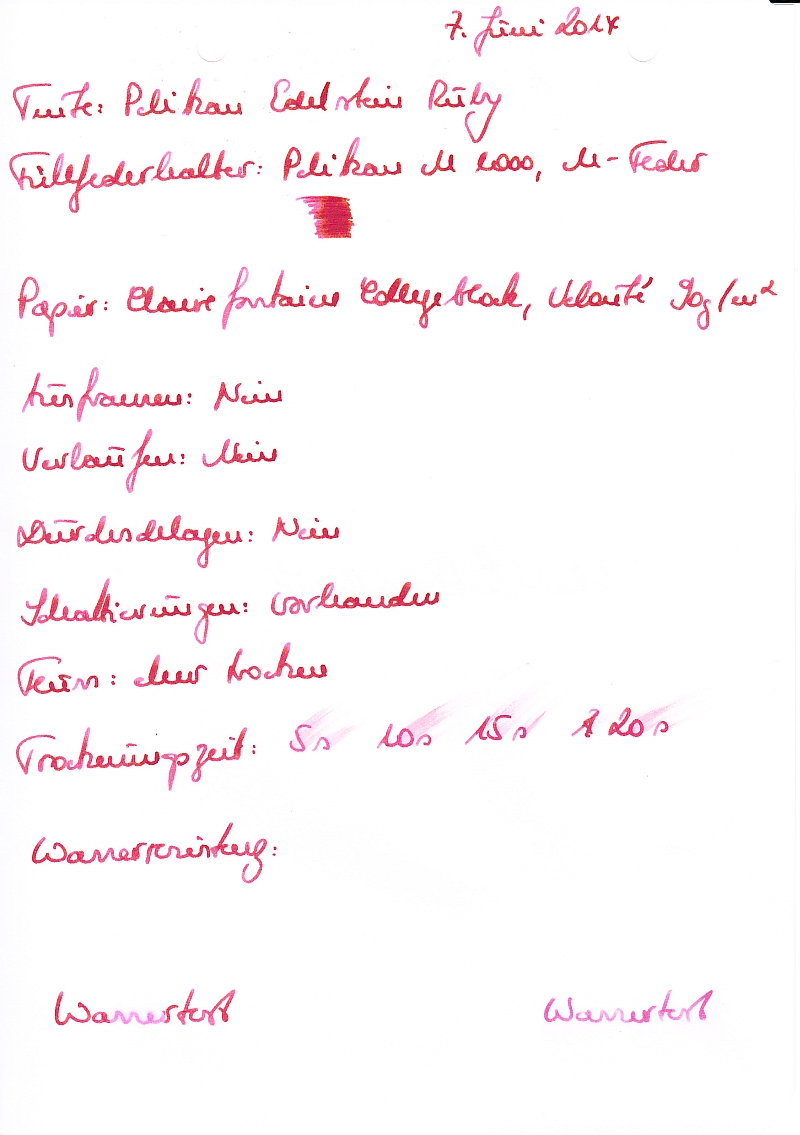 7. Juni 2014
Tinte: Pelikan Edelstein Ruby
Füllfederhalter: Pelikan M 1000, M-Feder
Papier: Clairefontaine Collegeblock, Velouté 90g/m²
Ausfransen: Nein
Verlaufen: Nein
Durchschlagen: Nein
Schattierungen: vorhanden
Feuss: eher trocken
Trocknungszeit: 5s 10s 15s 20s
Wasserresistenz:
Wassertest Wassertest